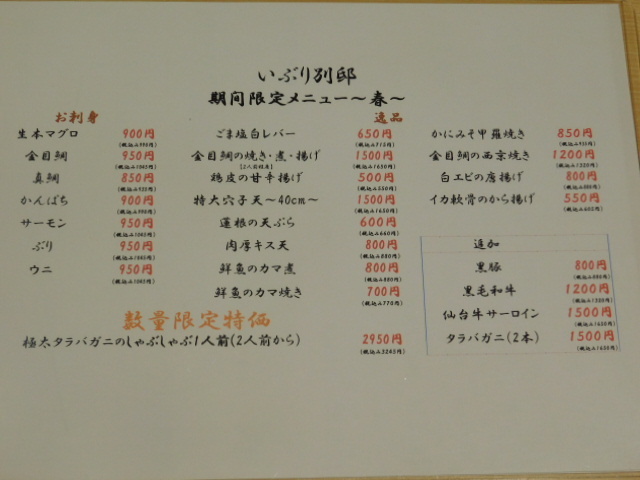 いぶり別邸
期間限定メニュー〜春〜
お刺身
生本マグロ 900円
(税込み990円)
金目鯛 950円
(税込み1045円)
真鯛 850円
(税込み935円)
かんぱち 900円
(税込み990円)
サーモン 950円
(税込み1045円)
ぶり 950円
(税込み1045円)
ウニ 950円
(税込み1045円)
逸品
ごま塩白レバー 650円
(税込み715円)
金目鯛の焼き・煮・揚げ 1500円
(税込み1650円)
鶏皮の甘辛揚げ 500円
(税込み550円)
特大穴子天〜40cm〜 1500円
(税込み1650円)
蓮根の天ぷら 600円
(税込み660円)
肉厚キス天 800円
(税込み880円)
鮮魚のカマ煮 800円
(税込み880円)
鮮魚のカマ焼き 700円
(税込み770円)
かにみそ甲羅焼き 850円
(税込み935円)
金目鯛の西京焼き 1200円
(税込み1320円)
白エビの唐揚げ 800円
(税込み880円)
イカ軟骨のから揚げ 550円
(税込み605円)
追加
黒豚 800円
(税込み880円)
黒毛和牛 1200円
(税込み1320円)
仙台牛サーロイン 1500円
(税込み1650円)
タラバガニ(2本) 1500円
(税込み1650円)
数量限定特価
極太タラバガニのしゃぶしゃぶ1人前(2人前から) 2950円
(税込み3245円)